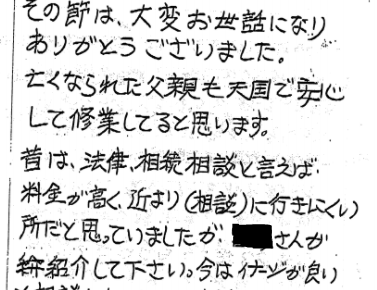 その節は、大変お世話になり
ありがとうございました。
亡くなられた父親も天国で安心
して修業してると思います。
昔は、法律、相続相談と言えば
料金が高く、近より(相談)に行きにくい
所だと思っていましたが、さんが
紹介して下さい。今はイメージが良い